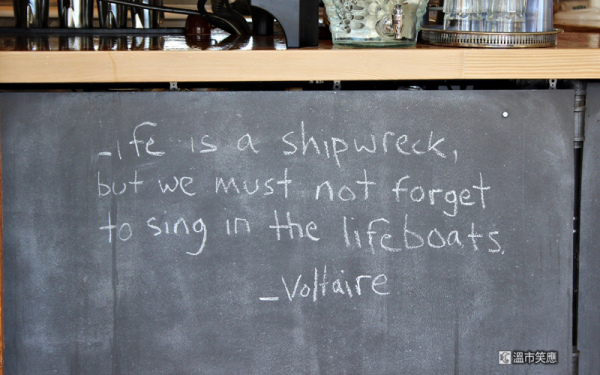 Life is a shipwreck,
but we must not forget
to sing in the lifeboats.
-Voltaire
溫市笑應